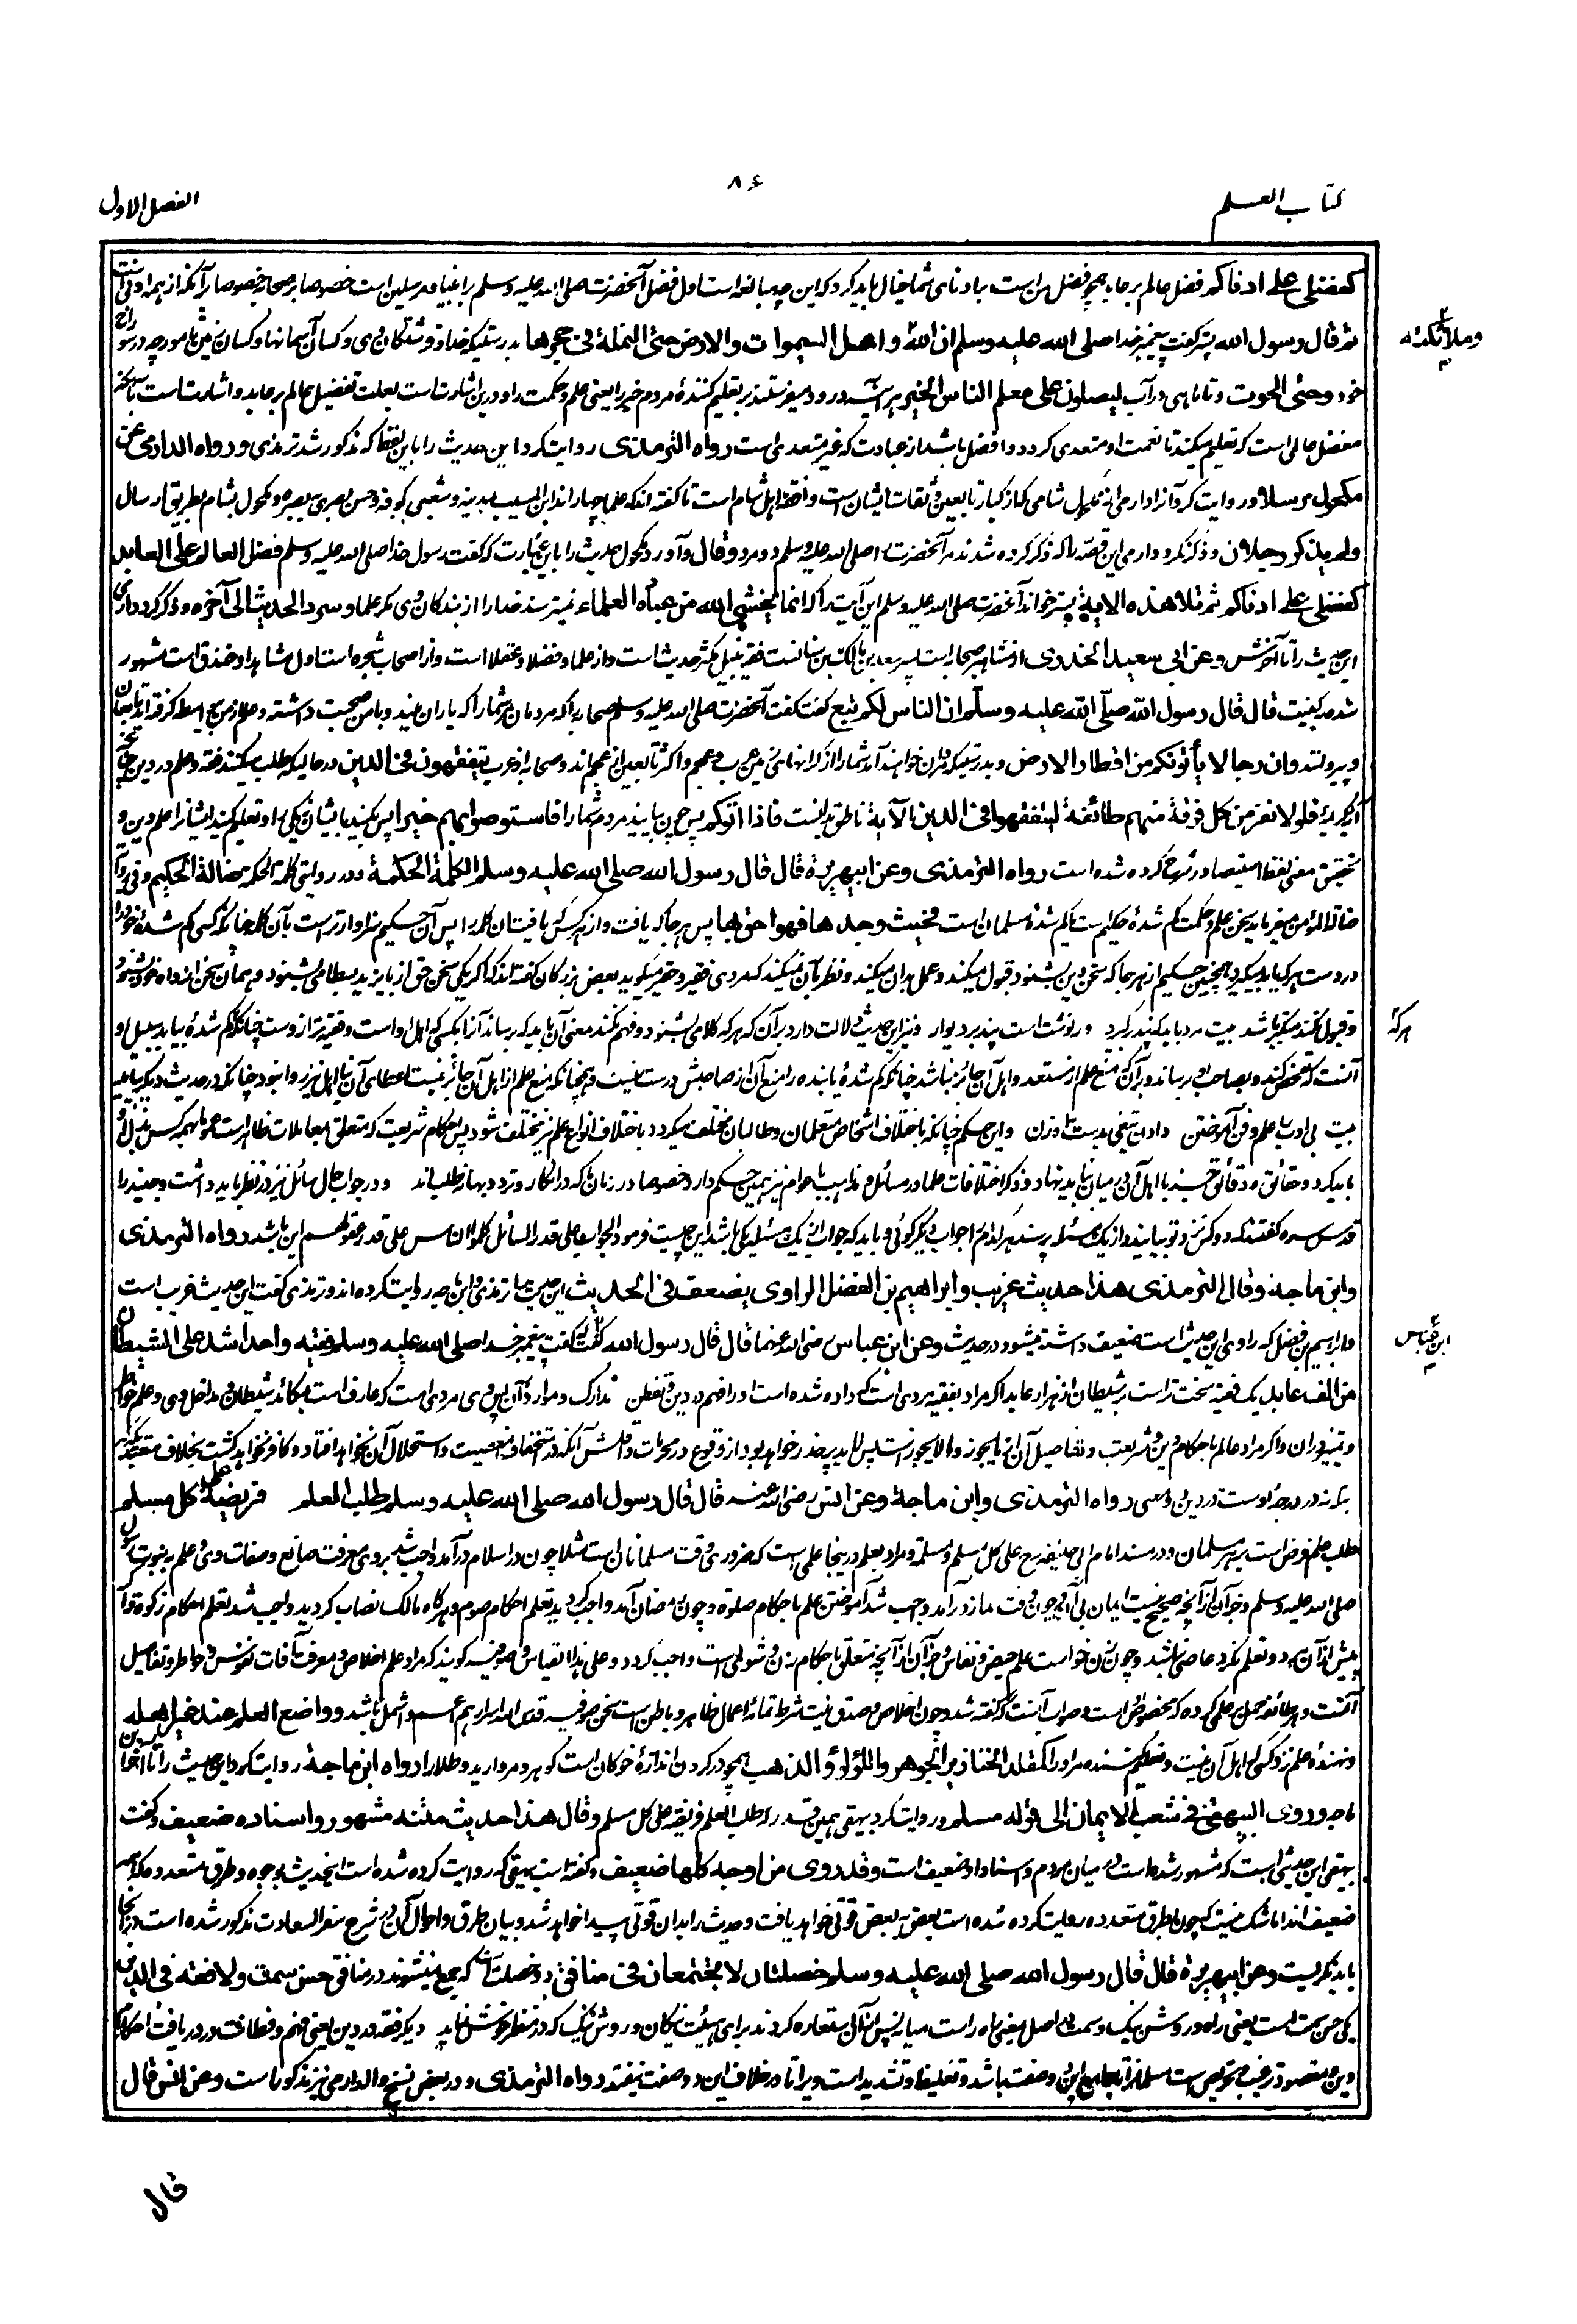 كتاب العلم
٨۶
الفصل الاول
كفضلی علی ادناكم فضل عالم بر عابد همچو فضل من است بر ادنای شما خیال باید کرد که این چه مبالغه است اول فضل آنحضرت صلی الله علیه وسلم را بر انبیا و مرسلین است خصوصا بر صحابه خصوصا بر آنکه از همه ادنی است
ثم قال رسول الله پستر گفت پیغمبر خدا صلی الله علیه وسلم ان الله واهل السموات والارض حتی النملة فی جحرها بدرستیکه خدا و فرشتگان وی و کسان آسمانها و کسان زمین تا مورچه در سوراخ
وملائكته
خود وحتی الحوت و تا ماهی در آب لیصلون علی معلم الناس الخیر هر آینه درود میفرستند بر تعلیم کنندهٔ مردم خیر را یعنی علم و حکمت را و درین اشارت است بعلت تفضیل عالم بر عابد و اشارت است بآنکه
مفضل عالمی است که تعلیم میکند تا نعمت او متعدی گردد و افضل باشد از عبادت که غیر متعدی است رواه الترمذی روایت کرد این حدیث را باین لفظ که مذکور شد ترمذی ورواه الدارمی عن
مکحول مرسلا و روایت کرد آنرا دارمی از مکحول شامی که از کبار تابعین و ثقات ایشان است و افقه اهل شام است تا گفته اند که علما چهار اند ابن المسیب بمدینه و شعبی بکوفه و حسن بصری ببصره و مکحول بشام بطریق ارسال
ولم یذکر رجلان و ذکر نکرد دارمی این قصه را که ذکر کرده شدند مر آنحضرت را صلی الله علیه وسلم دو مرد وقال و آورد مکحول حدیث را باین عبارت که گفت رسول خدا صلی الله علیه وسلم فضل العالم علی العابد
کفضلی علی ادناکم ثم تلا هذه الایة پستر خواند آنحضرت صلی الله علیه وسلم این آیت را که انما یخشی الله من عباده العلماء نمیترسند خدا را از بندگان وی مگر علما وسرد الحدیث الی آخره و ذکر کرد دارمی
این حدیث را تا آخرش وعن ابی سعید الخدری از مشاهیر صحابه است پسر سعد بن مالک بن سنانست فقیه نبیل مکثر حدیث است و از علما و فضلا و عقلا است و از اصحاب شجره است اول مشاهد او خندق است مشهور
شده بکنیت قال قال رسول الله صلی الله علیه وسلم ان الناس لکم تبع گفت گفت آنحضرت صلی الله علیه وسلم صحابه را که مردمان مر شما را که یاران منید و با من صحبت داشته و علم از من بی واسطه گرفته اید تابعان
و پیرواند وان رجالا یأتونکم من اقطار الارض و بدرستیکه مردان خواهند آمد شما را از کرانهای زمین عرب و عجم و اکثر تابعین از عجم اند و صحابه از عرب یتفقهون فی الدین در حالیکه طلب میکنند فقه و علم در دین چنانچه
آیه کریمه فلولا نفر من کل فرقة منهم طائفة لیتفقهوا فی الدین الآیة ناطق بدانست فاذا اتوکم پس چون بیایند مردم شما را فاستوصوا بهم خیرا پس بکنید بایشان نیکی را و تعلیم کنید ایشانرا علم دین و
تحقیق معنی لفظ استیصا در شرح کرده شده است رواه الترمذی وعن ابی هریرة قال قال رسول الله صلی الله علیه وسلم الکلمة الحکمة و در روایتی کلمة الحکمة ضالة الحکیم وفی روایة
ضالة المؤمن میفرماید سخن علم و حکمت گم شدهٔ حکیم است یا گم شدهٔ مسلمان است فحیث وجدها فهو احق بها پس هر جا که یافت و از هر کس که یافت آن کلمه را پس آن حکیم سزاوارتر است بآن کلمه چنانکه کسی گم شدهٔ خود را
در دست هر که یابد بگیرد همچنین حکیم از هر جا که سخن دین بشنود قبول میکند و عمل بدان میکند و نظر بآن نمیکند که مردی فقیر و حقیر میگوید بعض بزرگان گفته اند که اگر یکی سخن حق از بایزید بسطامی بشنود و همان سخن از داه خود بشنود
و قبول نکند متکبر باشد بیت مرد باید که پند گیرد ور نوشت است پند بر دیوار و نیز این حدیث دلالت دارد بر آن که هر که کلامی بشنود و فهم نکند معنی آن باید که برساند آنرا بکسی که اهل او است و فقیه تر از وست چنانکه گم شدهٔ بیابد سبیل او
هر که
آنست که تفحص کند و بصاحب او برساند و بر آن که منع علم از مستعد و اهل آن جائز نباشد چنانکه گم شدهٔ یابنده را منع آن از صاحبش درست نیست و همچنانکه منع علم از اهل آن جائز نیست اعطای آن بنا اهل نیز روا نبود چنانکه در حدیث دیگر بیاید
بیت بی ادب را علم و فن آموختن دادن تیغی بدست راه زن و این حکم چنانکه باختلاف اشخاص متعلمان و طالبان مختلف میگردد باختلاف انواع علم نیز مختلف شود پس احکام شریعت که متعلق بمعاملات ظاهر است عموما بهمه کس بذل او
باید کرد و حقائق و دقائق جز با اهل آن در میان نباید نهاد و ذکر اختلافات علما در مسائل و مذاهب با عوام نیز همین حکم دارد خصوصا در زمان ما که در انکار و تردد بهانه طلب اند و در جواب حال سائل نیز در نظر باید داشت و جنید را
قدس سره گفتند که دو کس نزد تو بیایند و از یک مسئله پرسند هر کدام را جوابی دیگر گوئی و باید که جواب یک مسئله یکی باشد این چیست فرمود الجواب علی قدر السائل کلموا الناس علی قدر عقولهم این باشد رواه الترمذی
وابن ماجة وقال الترمذی هذا حدیث غریب وابراهیم بن الفضل الراوی یضعف فی الحدیث این حدیث را ترمذی و ابن ماجه روایت کرده اند و ترمذی گفت این حدیث غریب است
و ابراهیم بن فضل که راوی این حدیث است ضعیف داشته میشود در حدیث وعن ابن عباس رضی الله عنهما قال قال رسول الله گفت ابن عباس که گفت پیغمبر خدا صلی الله علیه وسلم فقیه واحد اشد علی الشیطان
ابن عباس
من الف عابد یک فقیه سخت تر است بر شیطان از هزار عابد اگر مراد بفقیه مردی است که داده شده است او را فهم در دین و تفطن مدارک و موارد آن پس وی مردی است که عارف است بمکائد شیطان و مداخل وی و علم خواطر
و تمییز در آن و اگر مراد عالم باحکام دین و شریعت و تفاصیل آن از ما یجوز و ما لا یجوز است پس لابد بر حذر خواهد بود از وقوع در محرمات
رواه الترمذی وابن ماجة وعن انس رضی الله عنه قال قال رسول الله صلی الله علیه وسلم طلب العلم فریضة علی کل مسلم
طلب علم فرض است بر هر مسلمان و در مسند امام ابی حنیفه رح علی کل مسلم و مسلمة و مراد بعلم درینجا علمی است که ضروری وقت مسلمانان است مثلا چون در اسلام در آمد واجب شد بر وی معرفت صانع و صفات وی و علم به نبوت رسول
صلی الله علیه وسلم و جز آن از آنچه صحیح نیست ایمان بی آن و چون وقت نماز در آمد واجب شد آموختن علم باحکام صلوة و چون رمضان آمد واجب گردید تعلم احکام صوم و هر گاه مالک نصاب گردید واجب شد تعلم احکام زکوة و اگر
پیش از آن بمرد و تعلم نکرد عاصی نباشد و چون زن خواست علم حیض و نفاس و جز آن از آنچه متعلق باحکام زن و شوئی است واجب گردد و علی هذا القیاس و صوفیه گویند که مراد علم اخلاص و معرفت آفات نفوس و خواطر و تفاصیل
وواضع العلم عند غیر اهله
و نهندهٔ علم نزد کسی که اهل آن نیست کمقلد الخنازیر الجوهر واللؤلؤ والذهب همچو در گردن اندازهٔ خوکان است گوهر و مروارید و طلا را رواه ابن ماجة روایت کرد این حدیث را تا آخر ابن
ماجه وروی البیهقی فی شعب الایمان الی قوله مسلم و روایت کرد بیهقی همین قدر را طلب العلم فریضة علی کل مسلم وقال هذا حدیث متنه مشهور واسناده ضعیف و گفت
بیهقی این حدیثی است که مشهور شده است در میان مردم و اسناد او ضعیف است وقد روی من اوجه کلها ضعیف و گفته است بیهقی که روایت کرده شده است این حدیث بوجوه و طرق متعدده که همه
ضعیف اند اما شک نیست که چون بطرق متعدده روایت کرده شده است بعض به بعض قوتی خواهد یافت و حدیث را بدان قوتی پیدا خواهد شد و بیان طرق و احوال آن در شرح سفر السعادت مذکور شده است در آنجا
باید نگریست وعن ابی هریرة قال قال رسول الله صلی الله علیه وسلم خصلتان لا یجتمعان فی منافق دو خصلت است که جمع نمیشوند در منافق حسن سمت ولا فقه فی الدین
یکی حسن سمت است یعنی راه و روش نیک و سمت در اصل بمعنی راه راست میانه پس از آن استعاره کردند برای هیئت نیکان و روش نیک که در نظر خوش نماید دیگر فقه در دین یعنی فهم و فطانت در دریافت احکام
دین و مقصود ترغیب و تحریص است مسلمانرا تا جامع این دو صفت باشد و تغلیظ و تشدید است ویرا تا در خلاف این دو صفت نیفتد رواه الترمذی و در بعض نسخ والدارمی نیز مذکور است وعن انس قال
قال